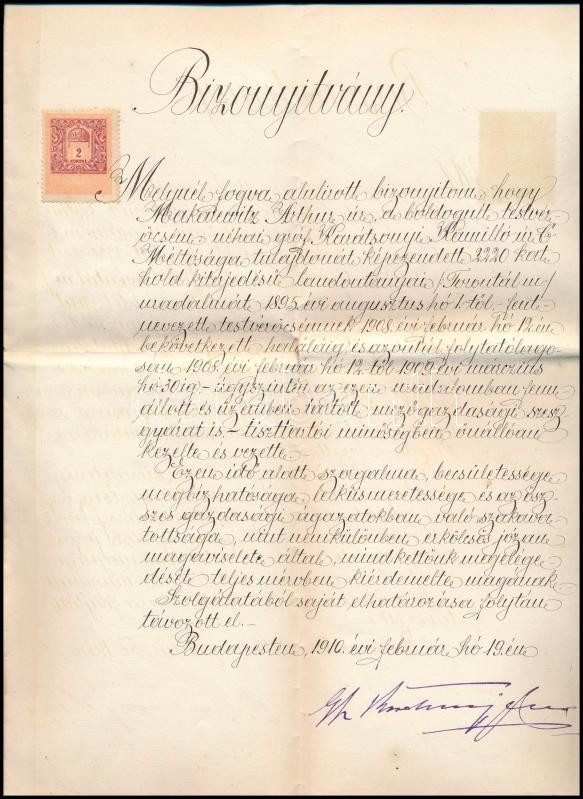 Bizonyitvány.
2
KORONA
Melynél fogva alulirott bizonyitom, hogy
Makarewitz Arthur úr, a boldogult testvér
öcsém néhai gróf Karátsonyi Kamilló úr Ő
Méltósága tulajdonát képezendett 2220 kat.
hold kiterjedésü /Torontál m/
uradalmát 1895. évi augusztus hó 1.-től.- fent-
nevezett testvéröcsémnek 1908 évi február hó 12.én
bekövetkezett haláláig és azontúl folytatólago-
san 1908. évi február hó 12. től 1909. évi március
hó 30 ig,- úgyszintén az ezen uradalomban fenn-
állott és üzemben tartott mezőgazdasági szesz-
gyárat is,- tiszttartói minőségben önállóan
kezelte és vezette.-
Ezen idő alatt szorgalma, becsületessége
megbizhatósága lelkiismeretessége és az ösz-
szes gazdasági ágazatokban való szakava-
tottsága, mint nemkülömben erkölcsös józan
magaviselete által, mindkettőnk megelége-
dését teljes mérvben kiérdemelte magának.
Szolgálatából saját elhatározása folytán
távozott el.-
Budapesten, 1910. évi február hó 19.én.